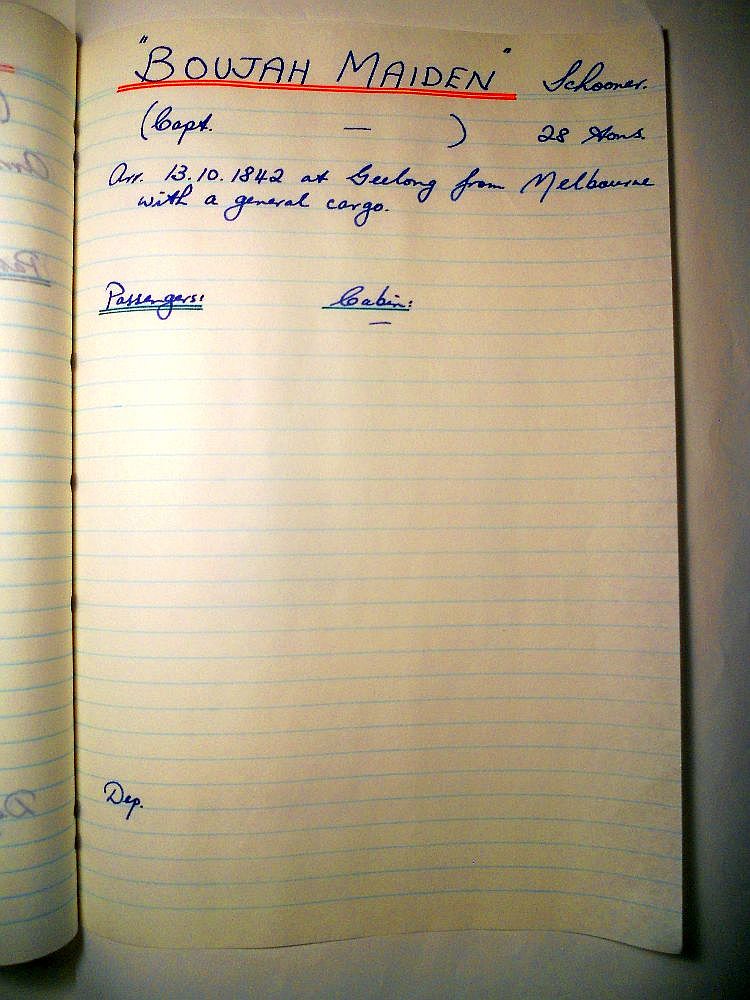 "BOUJAH MAIDEN" Schooner.
(Capt. — ) 28 tons.
Arr. 13.10.1842 at Geelong from Melbourne
with a general cargo.
Passengers: Cabin:
—
Dep.